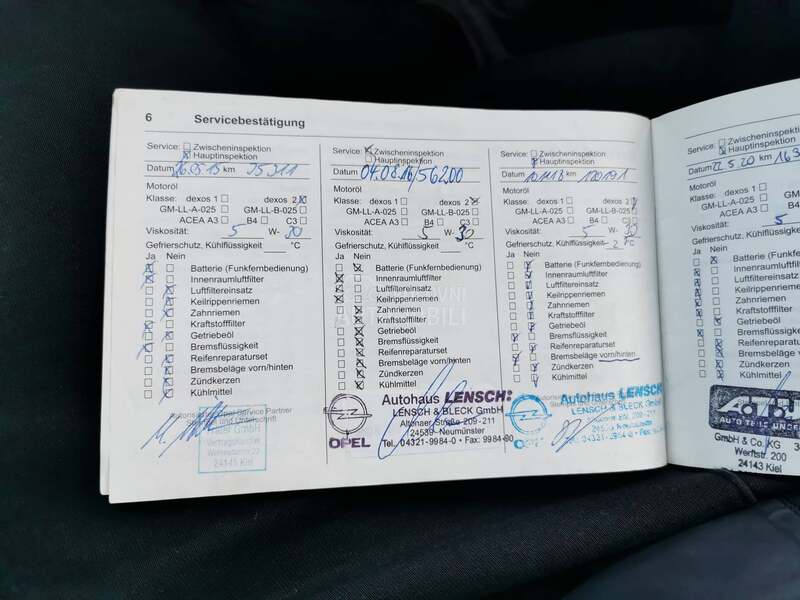 6 Servicebestätigung
Service: Zwischeninspektion
Hauptinspektion
Datum 16.09.15 km 35 311
Motoröl
Klasse: dexos 1 dexos 2
GM-LL-A-025 GM-LL-B-025
ACEA A3 B4 C3
Viskosität: 5 W-
Gefrierschutz, Kühlflüssigkeit °C
Ja Nein
Batterie (Funkfernbedienung)
Innenraumluftfilter
Luftfiltereinsatz
Keilrippenriemen
Zahnriemen
Kraftstofffilter
Getriebeöl
Bremsflüssigkeit
Reifenreparaturset
Bremsbeläge vorn/hinten
Zündkerzen
Kühlmittel
Opel Service Partner
24143 Kiel
Service: Zwischeninspektion
Hauptinspektion
Datum 04.08.16/56200
Motoröl
Klasse: dexos 1 dexos 2
GM-LL-A-025 GM-LL-B-025
ACEA A3 B4 C3
Viskosität: 5 W- 30
Gefrierschutz, Kühlflüssigkeit °C
Ja Nein
Batterie (Funkfernbedienung)
Innenraumluftfilter
Luftfiltereinsatz
Keilrippenriemen
Zahnriemen
Kraftstofffilter
Getriebeöl
Bremsflüssigkeit
Reifenreparaturset
Bremsbeläge vorn/hinten
Zündkerzen
Kühlmittel
OPEL
Autohaus LENSCH:
LENSCH & BLECK GmbH
Altonaer Straße 209-211
24539 Neumünster
Tel. 04321-9984-0 • Fax: 9984-90
Service: Zwischeninspektion
Hauptinspektion
Datum km 120191
Motoröl
Klasse: dexos 1 dexos 2
GM-LL-A-025 GM-LL-B-025
ACEA A3 B4 C3
Viskosität: 5 W- 30
Gefrierschutz, Kühlflüssigkeit °C
Ja Nein
Batterie (Funkfernbedienung)
Innenraumluftfilter
Luftfiltereinsatz
Keilrippenriemen
Zahnriemen
Kraftstofffilter
Getriebeöl
Bremsflüssigkeit
Reifenreparaturset
Bremsbeläge vorn/hinten
Zündkerzen
Kühlmittel
Autohaus LENSCH
LENSCH & BLECK GmbH
Service: Zwischeninspektion
Hauptinspektion
Datum 22.5.20 km
Motoröl
Klasse: dexos 1
GM-LL-A-025
ACEA A3
Viskosität: 5
Gefrierschutz, Kühlflüssigk
Ja Nein
Batterie (Funkfer
Innenraumluftfilter
Luftfiltereinsatz
Keilrippenriemen
Zahnriemen
Kraftstofffilter
Getriebeöl
Bremsflüssigkeit
Reifenreparaturse
Bremsbeläge vorn
Zündkerzen
Kühlmittel
GmbH & Co. KG
Werftstr. 200
24143 Kiel